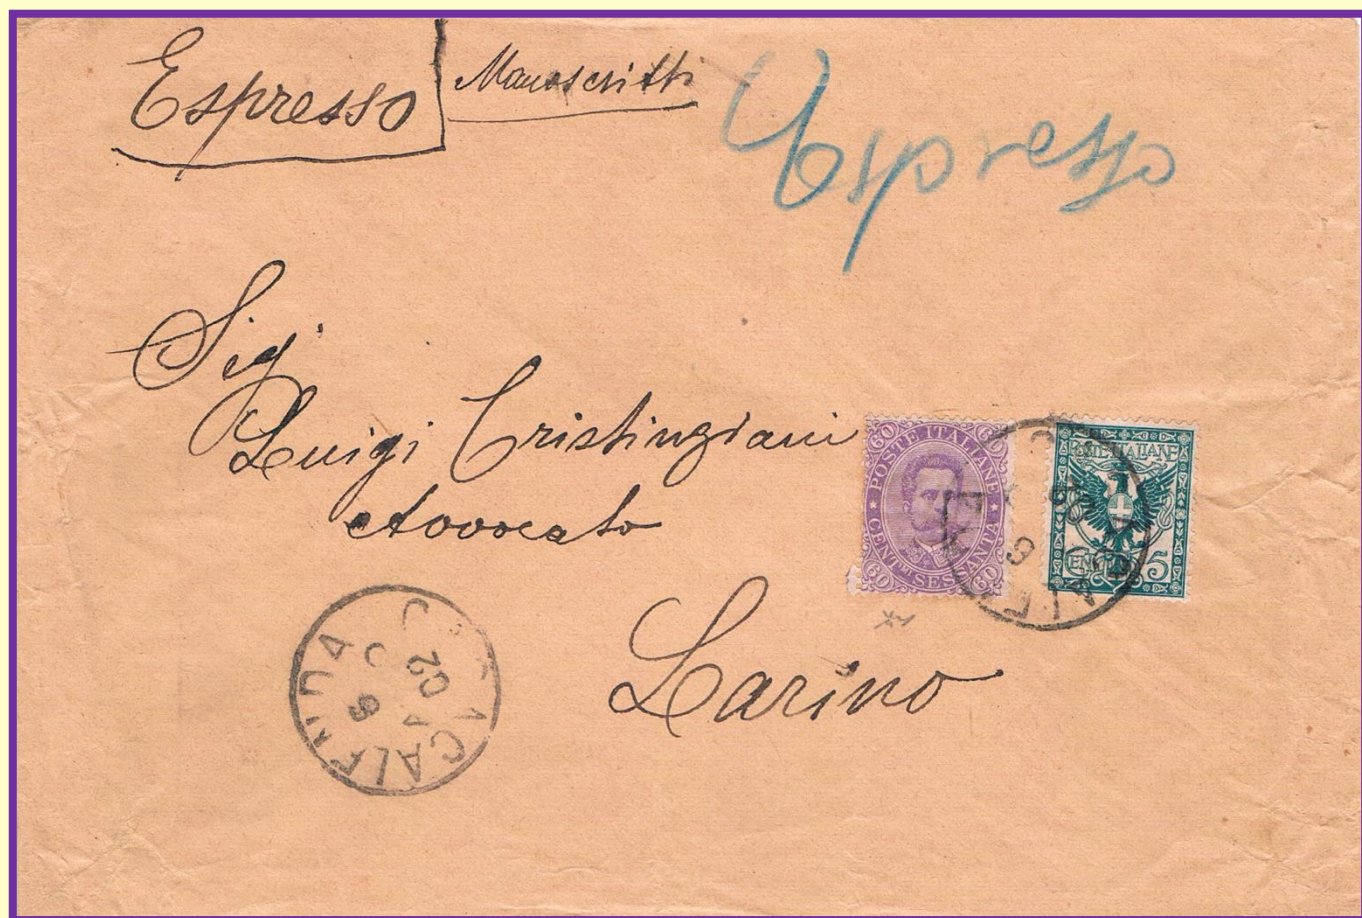 Espresso
Manoscritti
Espresso
Sig
Luigi Cristinziani
Avvocato
Larino
60 POSTE ITALIANE 60
CENTMI SESSANTA
60 60
POSTE ITALIANE
CENT 5
02
6
02